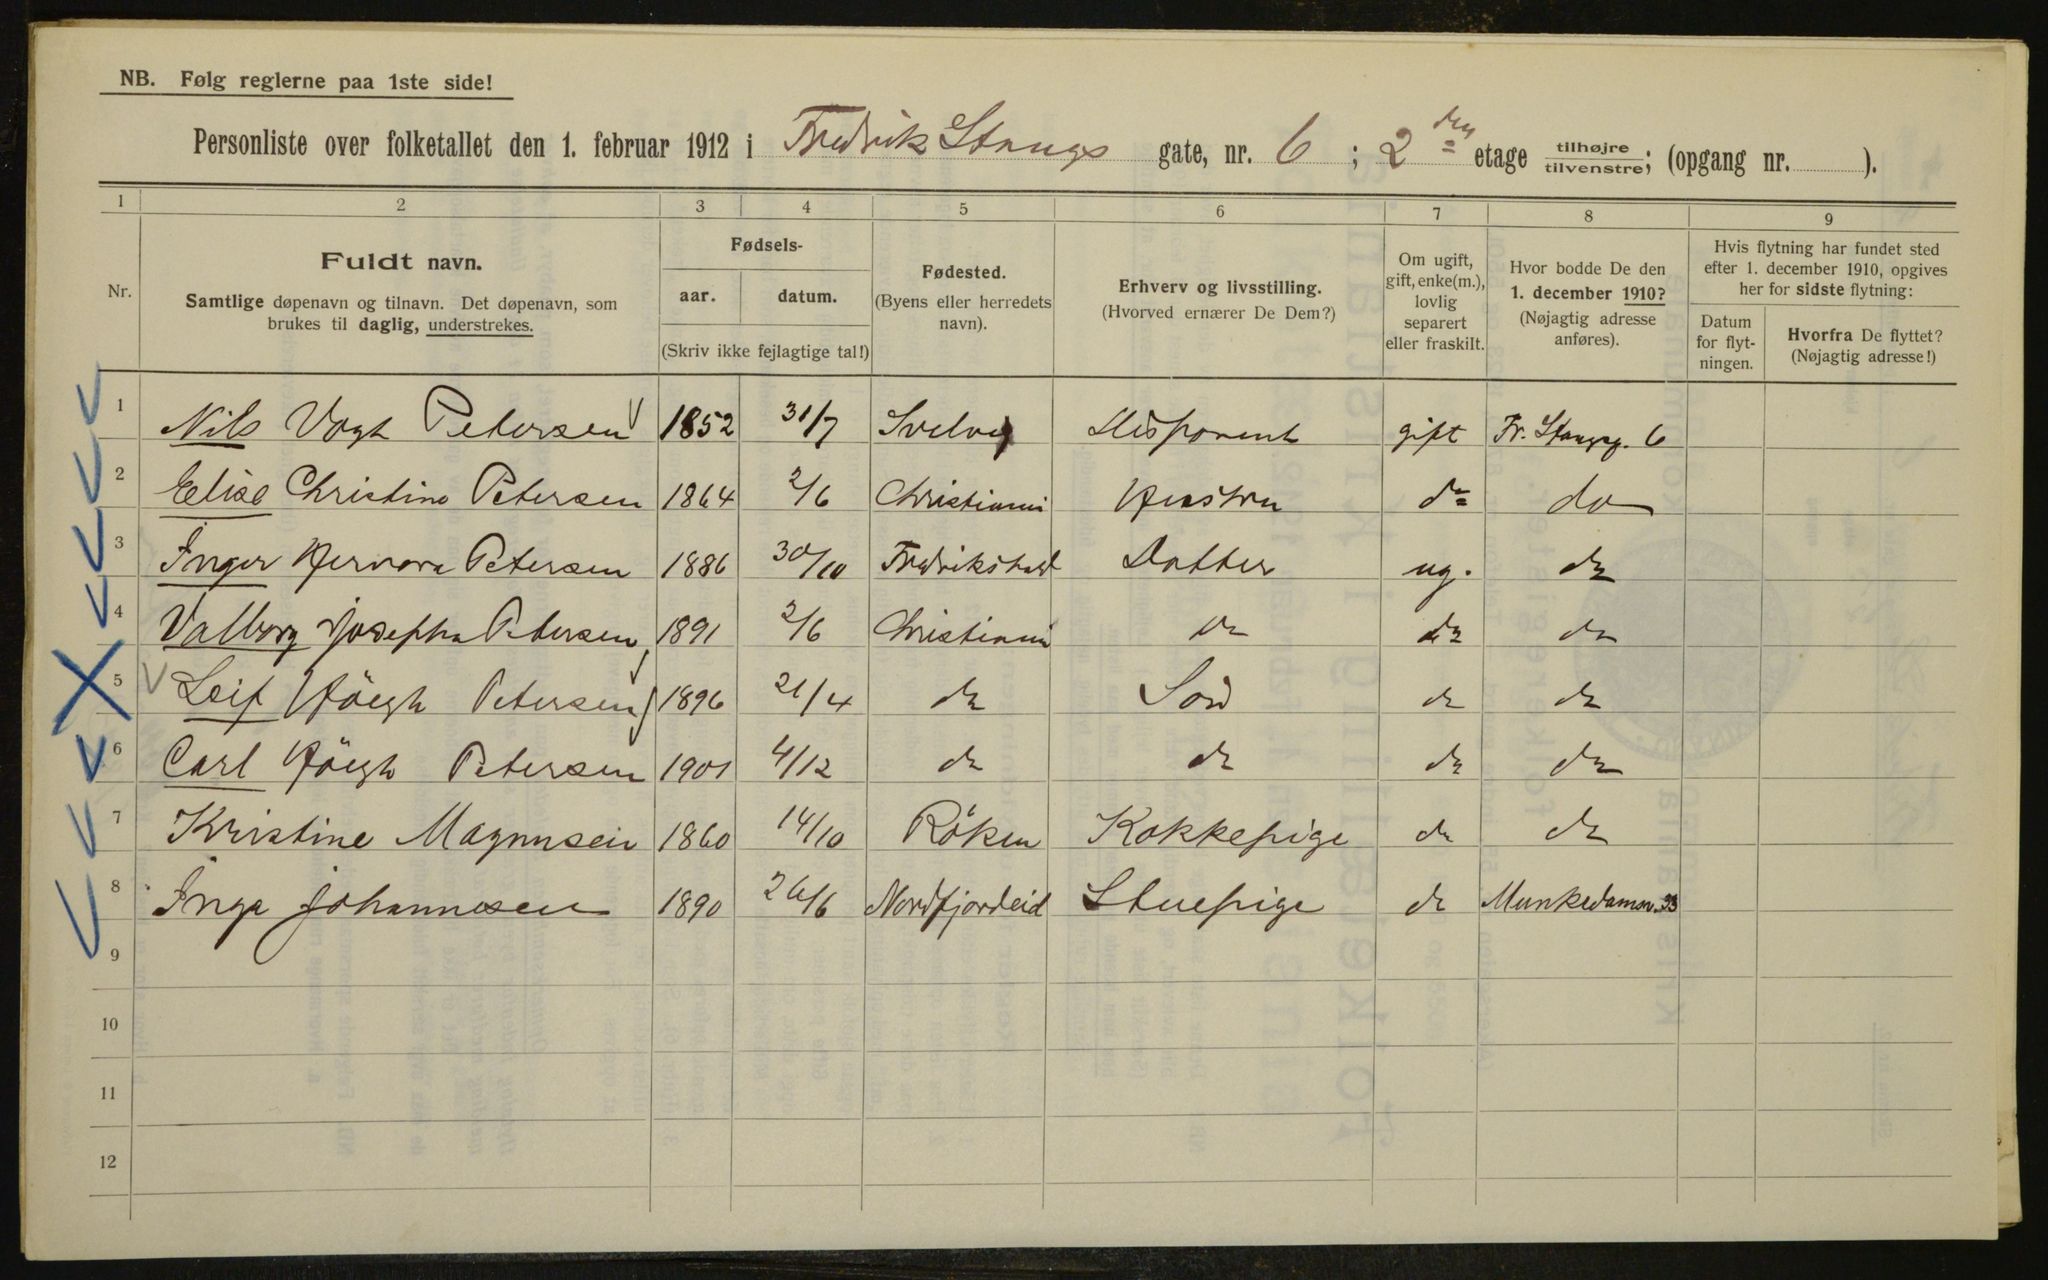 NB. Følg reglerne paa 1ste side!
Personliste over folketallet den 1. februar 1912 i Fredrik Stangs gate, nr. 6 ; 2den etage tilhøjre tilvenstre; (opgang nr. ).
1 2 3 4 5 6 7 8 9
Nr.
Fuldt navn.
Samtlige døpenavn og tilnavn. Det døpenavn, som
brukes til daglig, understrekes.
Fødsels-
aar. datum.
(Skriv ikke fejlagtige tal!)
Fødested.
(Byens eller herredets
navn).
Erhverv og livsstilling.
(Hvorved ernærer De Dem?)
Om ugift,
gift, enke(m.),
lovlig
separert
eller fraskilt.
Hvor bodde De den
1. december 1910?
(Nøjagtig adresse
anføres).
Hvis flytning har fundet sted
efter 1. december 1910, opgives
her for sidste flytning:
Datum
for flyt-
ningen.
Hvorfra De flyttet?
(Nøjagtig adresse!)
1 Nils Vogt Petersen 1852 31/7 Svelvig Disponent gift Fr. Stangsg. 6
2 Elise Christine Petersen 1864 2/6 Christiania Hustru do do
3 Inger Petersen 1886 30/10 Fredrikstad Datter ug. do
4 Valborg Josepha Petersen 1891 2/6 Christiania do do do
5 Leif Höegh Petersen 1896 21/4 do Søn do do
6 Carl Höegh Petersen 1901 4/12 do do do do
7 Kristine Magnusen 1860 14/10 Röken Kokkepige do do
8 Inga Johannesen 1890 26/6 Nordfjordeid Stuepige do Munkedamsv. 33
9
10
11
12